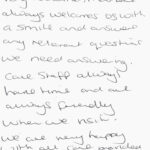 always welcomes us with
a smile and answers
any relevant question
we need answering.
Care Staff always
have time and are
always friendly
when we visit.
We are very happy
with all care provided